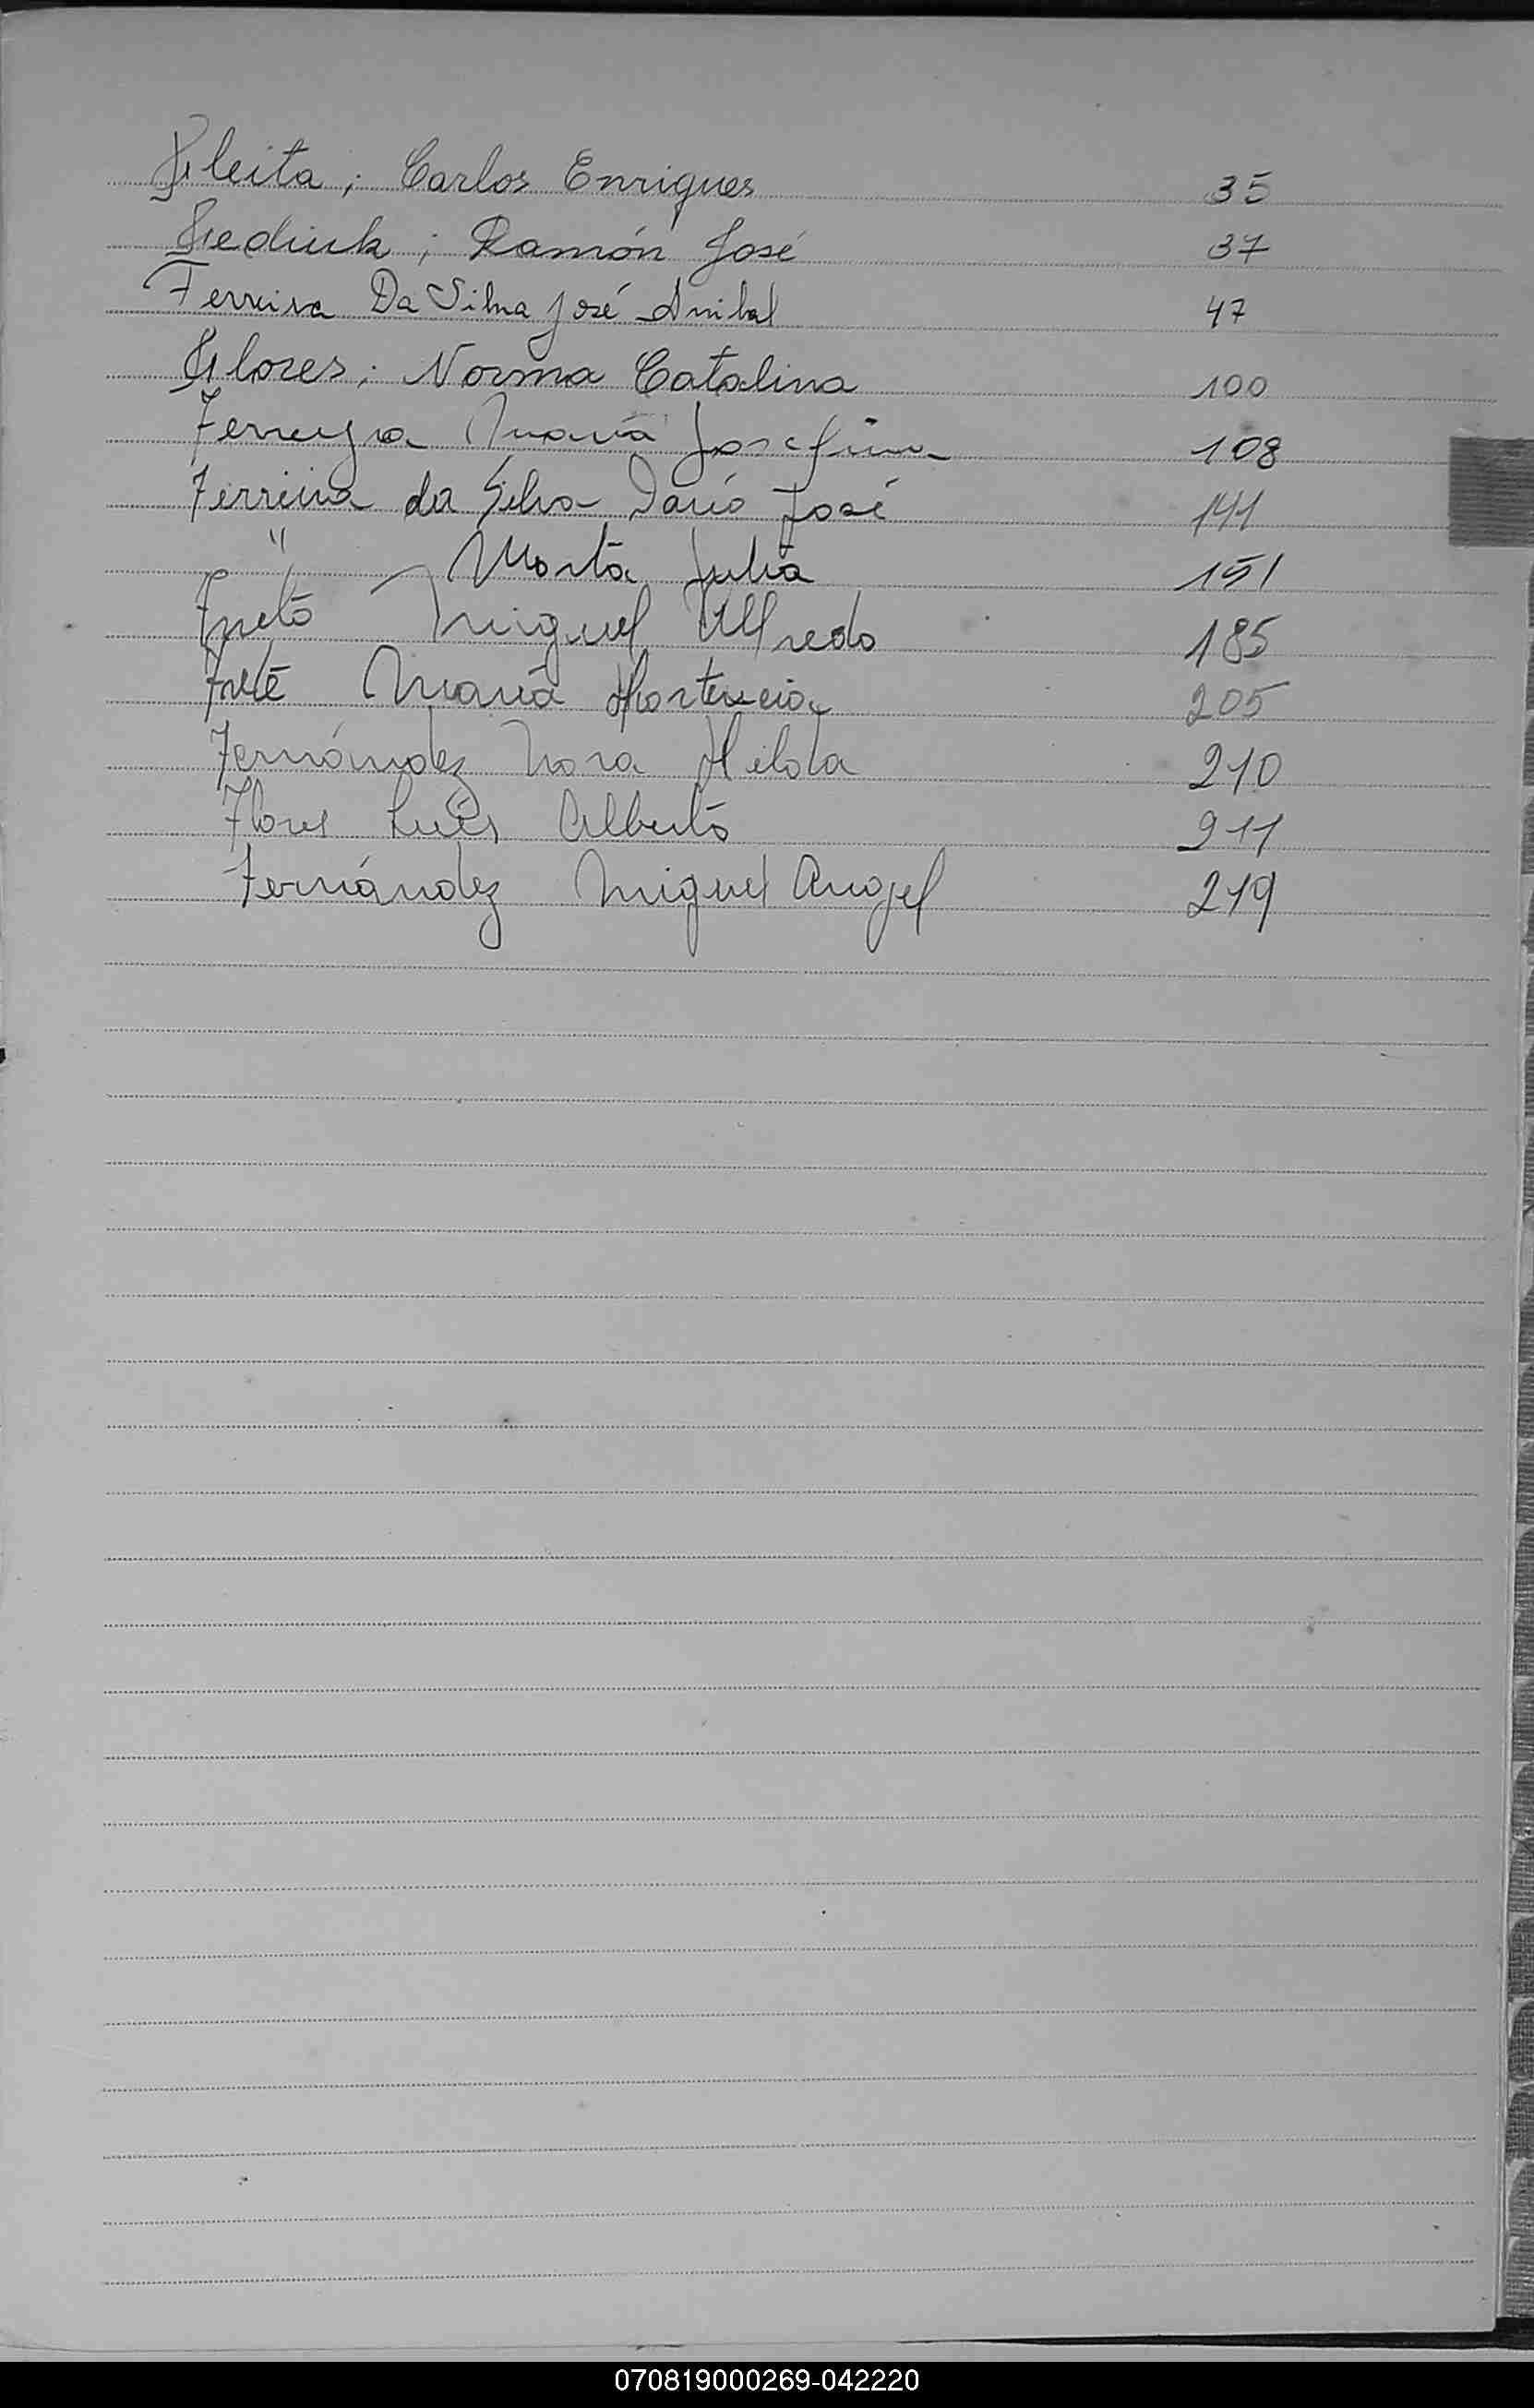 Fleita; Carlos Enriques 35
Fediuk; Ramón José 37
Ferreira Da Silva José Anibal 47
Flores; Norma Catalina 100
Ferreyra María Josefina 108
Ferreira da Silva Darío José 141
" Marta Julia 151
Miguel Alfredo 185
María Hortencia 205
Fernández Nora Hilda 210
Flores Luis Alberto 211
Fernández Miguel Angel 219
070819000269-042220